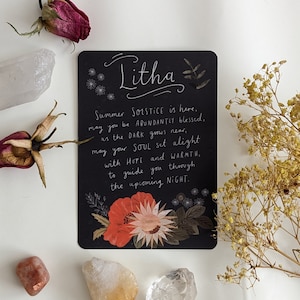 Litha
Summer SOLSTICE is here,
may you be ABUNDANTLY blessed,
as the DARK grows near,
may your SOUL sit alight
with HOPE and WARMTH,
to guide you through
the upcoming NIGHT.